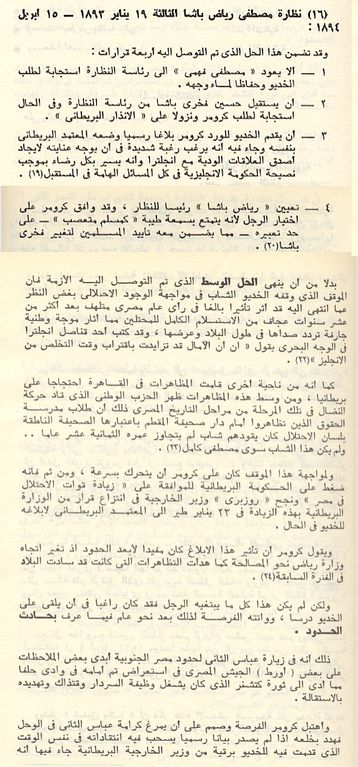 (١٦) نظارة مصطفى رياض باشا الثالثة ١٩ يناير ١٨٩٣ — ١٥ ابريل
١٨٩٤ :
وقد تضمن هذا الحل الذى تم التوصل اليه أربعة قرارات :
١ — ألا يعود « مصطفى فهمى » الى رئاسة النظارة استجابة لطلب
الخديو وحفاظا لماء وجهه .
٢ — أن يستقيل حسين فخرى باشا من رئاسة النظارة وفى الحال
استجابة لطلب كرومر ونزولا على « الانذار البريطانى » .
٣ — أن يقدم الخديو للورد كرومر بلاغا رسميا وضعه المعتمد البريطانى
بنفسه وجاء فيه انه يرغب رغبة شديدة فى أن يوجه عنايته لايجاد
أصدق العلاقات الودية مع انجلترا وانه يسير بكل رضاء بموجب
نصيحة الحكومة الانجليزية فى كل المسائل الهامة فى المستقبل(١٩) .
٤ — تعيين « رياض باشا » رئيسا للنظار ، وقد وافق كرومر على
اختيار الرجل لأنه يتمتع بسمعة طيبة « كمسلم متعصب » — على
حد تعبيره — مما يضمن معه تأييد المسلمين لتغيير فخرى
باشا(٢٠) .
بدلا من أن ينهى الحل الوسط الذى تم التوصل اليه الأزمة فان
الموقف الذى وقفه الخديو الشاب فى مواجهة الوجود الاحتلالى بغض النظر
عما انتهى اليه قد أثر تأثيرا بالغا فى رأى عام مصرى متلهف بعد أكثر من
عشر سنوات عجاف من الاستسلام الكامل للمحتلين مما أثار موجة وطنية
جارفة تردد صداها فى طول البلاد وعرضها ، وقد كتب أحد قناصل انجلترا
فى الوجه البحرى يقول « ان الآمال قد تزايدت باقتراب وقت التخلص من
الانجليز »(٢٢) .
كما أنه من ناحية أخرى قامت المظاهرات فى القاهرة احتجاجا على
بريطانيا ، ومن وسط هذه المظاهرات ظهر الحزب الوطنى الذى قاد حركة
النضال فى تلك المرحلة من مراحل التاريخ المصرى ذلك أن طلاب مدرسة
الحقوق الذين تظاهروا أمام دار صحيفة المقطم باعتبارها الصحيفة الناطقة
بلسان الاحتلال كان يقودهم شاب لم يتجاوز عمره الثمانية عشر عاما ..
ولم يكن هذا الشاب سوى مصطفى كامل(٢٣) .
ولمواجهة هذا الموقف كان على كرومر أن يتحرك بسرعة ، ومن ثم فانه
ضغط على الحكومة البريطانية للموافقة على « زيادة قوات الاحتلال
فى مصر » ونجح « روزبرى » وزير الخارجية فى انتزاع قرار من الوزارة
البريطانية بهذه الزيادة فى ٢٣ يناير طير الى المعتمد البريطانى لابلاغه
للخديو فى الحال .
ويقول كرومر أن تأثير هذا الابلاغ كان مفيدا لأبعد الحدود اذ تغير اتجاه
وزارة رياض نحو المصالحة كما هدأت التظاهرات التى كانت قد سادت البلاد
فى الفترة السابقة(٢٤) .
ولكن لم يكن هذا كل ما يبتغيه الرجل فقد كان راغبا فى أن يلقى على
الخديو درسا ، وواتته الفرصة لذلك بعد نحو عام فيما عرف بحادث
الحدود .
ذلك أنه فى زيارة عباس الثانى لحدود مصر الجنوبية أبدى بعض الملاحظات
على بعض ( أورط ) الجيش المصرى فى استعراض تم أمامه فى وادى حلفا
مما أدى الى ثورة كتشنر الذى كان يشغل وظيفة السردار وقتذاك وتهديده
بالاستقالة .
واهتبل كرومر الفرصة وصمم على أن يمرغ كرامة عباس الثانى فى الوحل
فهدد بخلعه اذا لم يصدر بيانا رسميا يسحب فيه انتقاداته فى نفس الوقت
الذى قدمت فيه للخديو برقية من وزير الخارجية البريطانية جاء فيها أنه